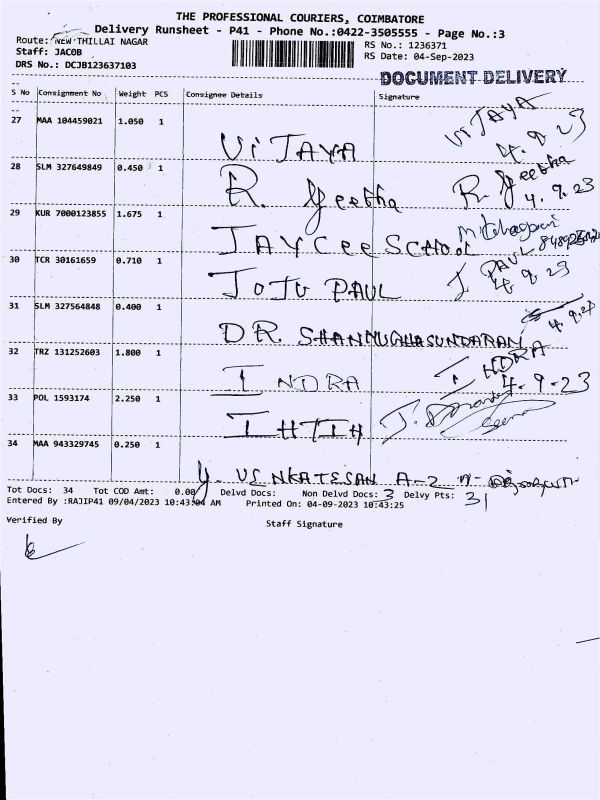 THE PROFESSIONAL COURIERS, COIMBATORE
Delivery Runsheet - P41 - Phone No.:0422-3505555 - Page No.:3
Route: NEW THILLAI NAGAR
RS No.: 1236371
Staff: JACOB
RS Date: 04-Sep-2023
DRS No.: DCJB123637103
DOCUMENT DELIVERY
S No Consignment No Weight PCS Consignee Details Signature
27 MAA 104459021 1.050 1 VIJAYA VIJAYA 4.9.23
28 SLM 327649849 0.450 1 R. Geetha R. Geetha 4.9.23
29 KUR 7000123855 1.675 1 JAYCEE SCHOOL
30 TCR 30161659 0.710 1 JOJU PAUL J PAUL 4.9.23
31 SLM 327564848 0.400 1 DR. SHANMUGHASUNDARAN 4.9.23
32 TRZ 131252603 1.800 1 INDRA INDRA 4-9-23
33 POL 1593174 2.250 1
34 MAA 943329745 0.250 1 VENKATESAN A-2
Tot Docs: 34 Tot COD Amt: 0.00 Delvd Docs: Non Delvd Docs: 3 Delvy Pts: 31
Entered By :RAJIP41 09/04/2023 10:43:04 AM Printed On: 04-09-2023 10:43:25
Verified By
Staff Signature